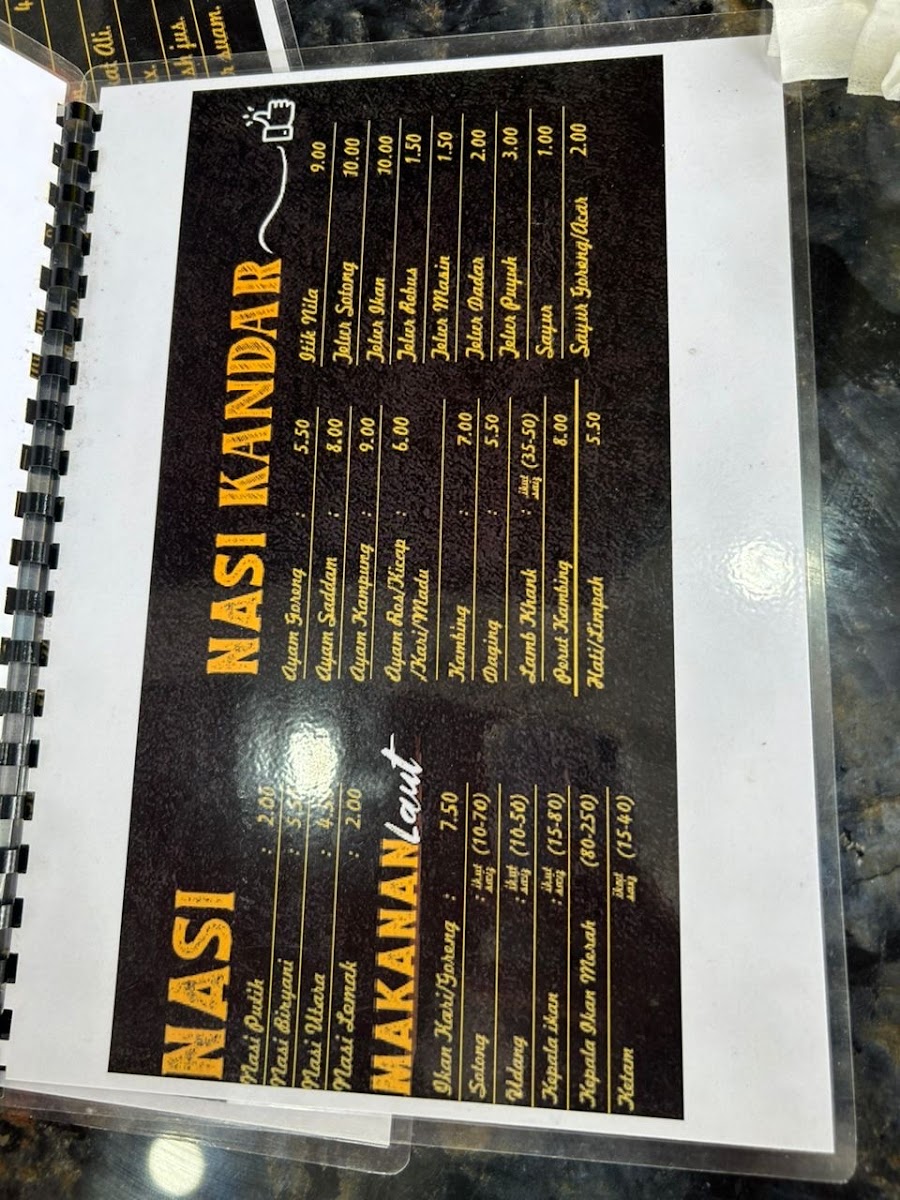 at Ali.
x.
sh jus.
r suam.
NASI
Nasi Putih : 2.00
Nasi Biryani :
Nasi Utara :
Nasi Lemak : 2.00
MAKANAN Laut
Ikan Kari/Goreng : 7.50
Sotong : ikut saiz (10-70)
Udang : ikut saiz (10-50)
Kepala ikan : ikut saiz (15-80)
Kepala Ikan Merah (80-250)
Ketam ikut saiz (15-40)
NASI KANDAR
Ayam Goreng : 5.50
Ayam Sadam : 8.00
Ayam Kampung : 9.00
Ayam Ros/Kicap : 6.00
/Kari/Madu
Kambing : 7.00
Daging : 5.50
Lamb Khank : ikut saiz (35-50)
Perut Kambing 8.00
Hati/Limpah 5.50
Itik Nila 9.00
Telur Sotong 10.00
Telur Ikan 10.00
Telur Rebus 1.50
Telur Masin 1.50
Telur Dadar 2.00
Telur Puyuh 3.00
Sayur 1.00
Sayur Goreng/Acar 2.00